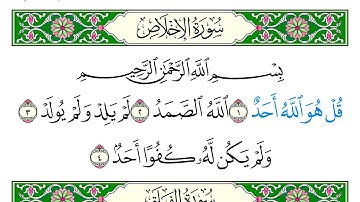 سُورَةُ الإِخْلَاصِ
بِسْمِ اللَّهِ الرَّحْمَٰنِ الرَّحِيمِ
قُلْ هُوَ اللَّهُ أَحَدٌ ١ اللَّهُ الصَّمَدُ ٢ لَمْ يَلِدْ وَلَمْ يُولَدْ ٣
وَلَمْ يَكُن لَّهُ كُفُوًا أَحَدٌ ٤
سُورَةُ الفَلَقِ